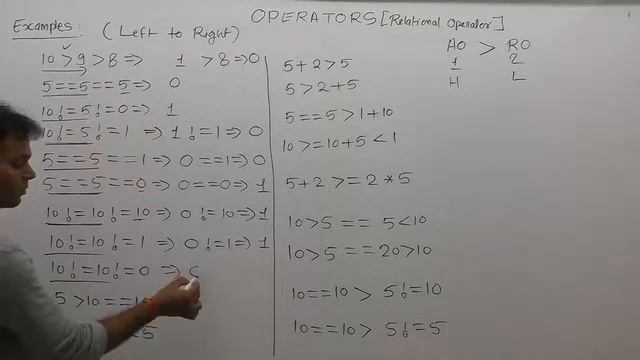 OPERATORS [Relational Operator]
Examples: (Left to Right)
10 > 9 > 8 => 1 > 8 => 0
5 == 5 == 5 => 0
10 != 5 != 0 => 1
10 != 5 != 1 => 1 != 1 => 0
5 == 5 == 1 => 0 == 1 => 0
5 == 5 == 0 => 0 == 0 => 1
10 != 10 != 10 => 0 != 10 => 1
10 != 10 != 1 => 0 != 1 => 1
10 != 10 != 0 =>
5 > 10 == 
5
5 + 2 > 5
5 > 2 + 5
5 == 5 > 1 + 10
10 >= 10 + 5 < 1
5 + 2 >= 2 * 5
10 > 5 == 5 < 10
10 > 5 == 20 > 10
10 == 10 > 5 != 10
10 == 10 > 5 != 5
AO > RO
1 2
H L